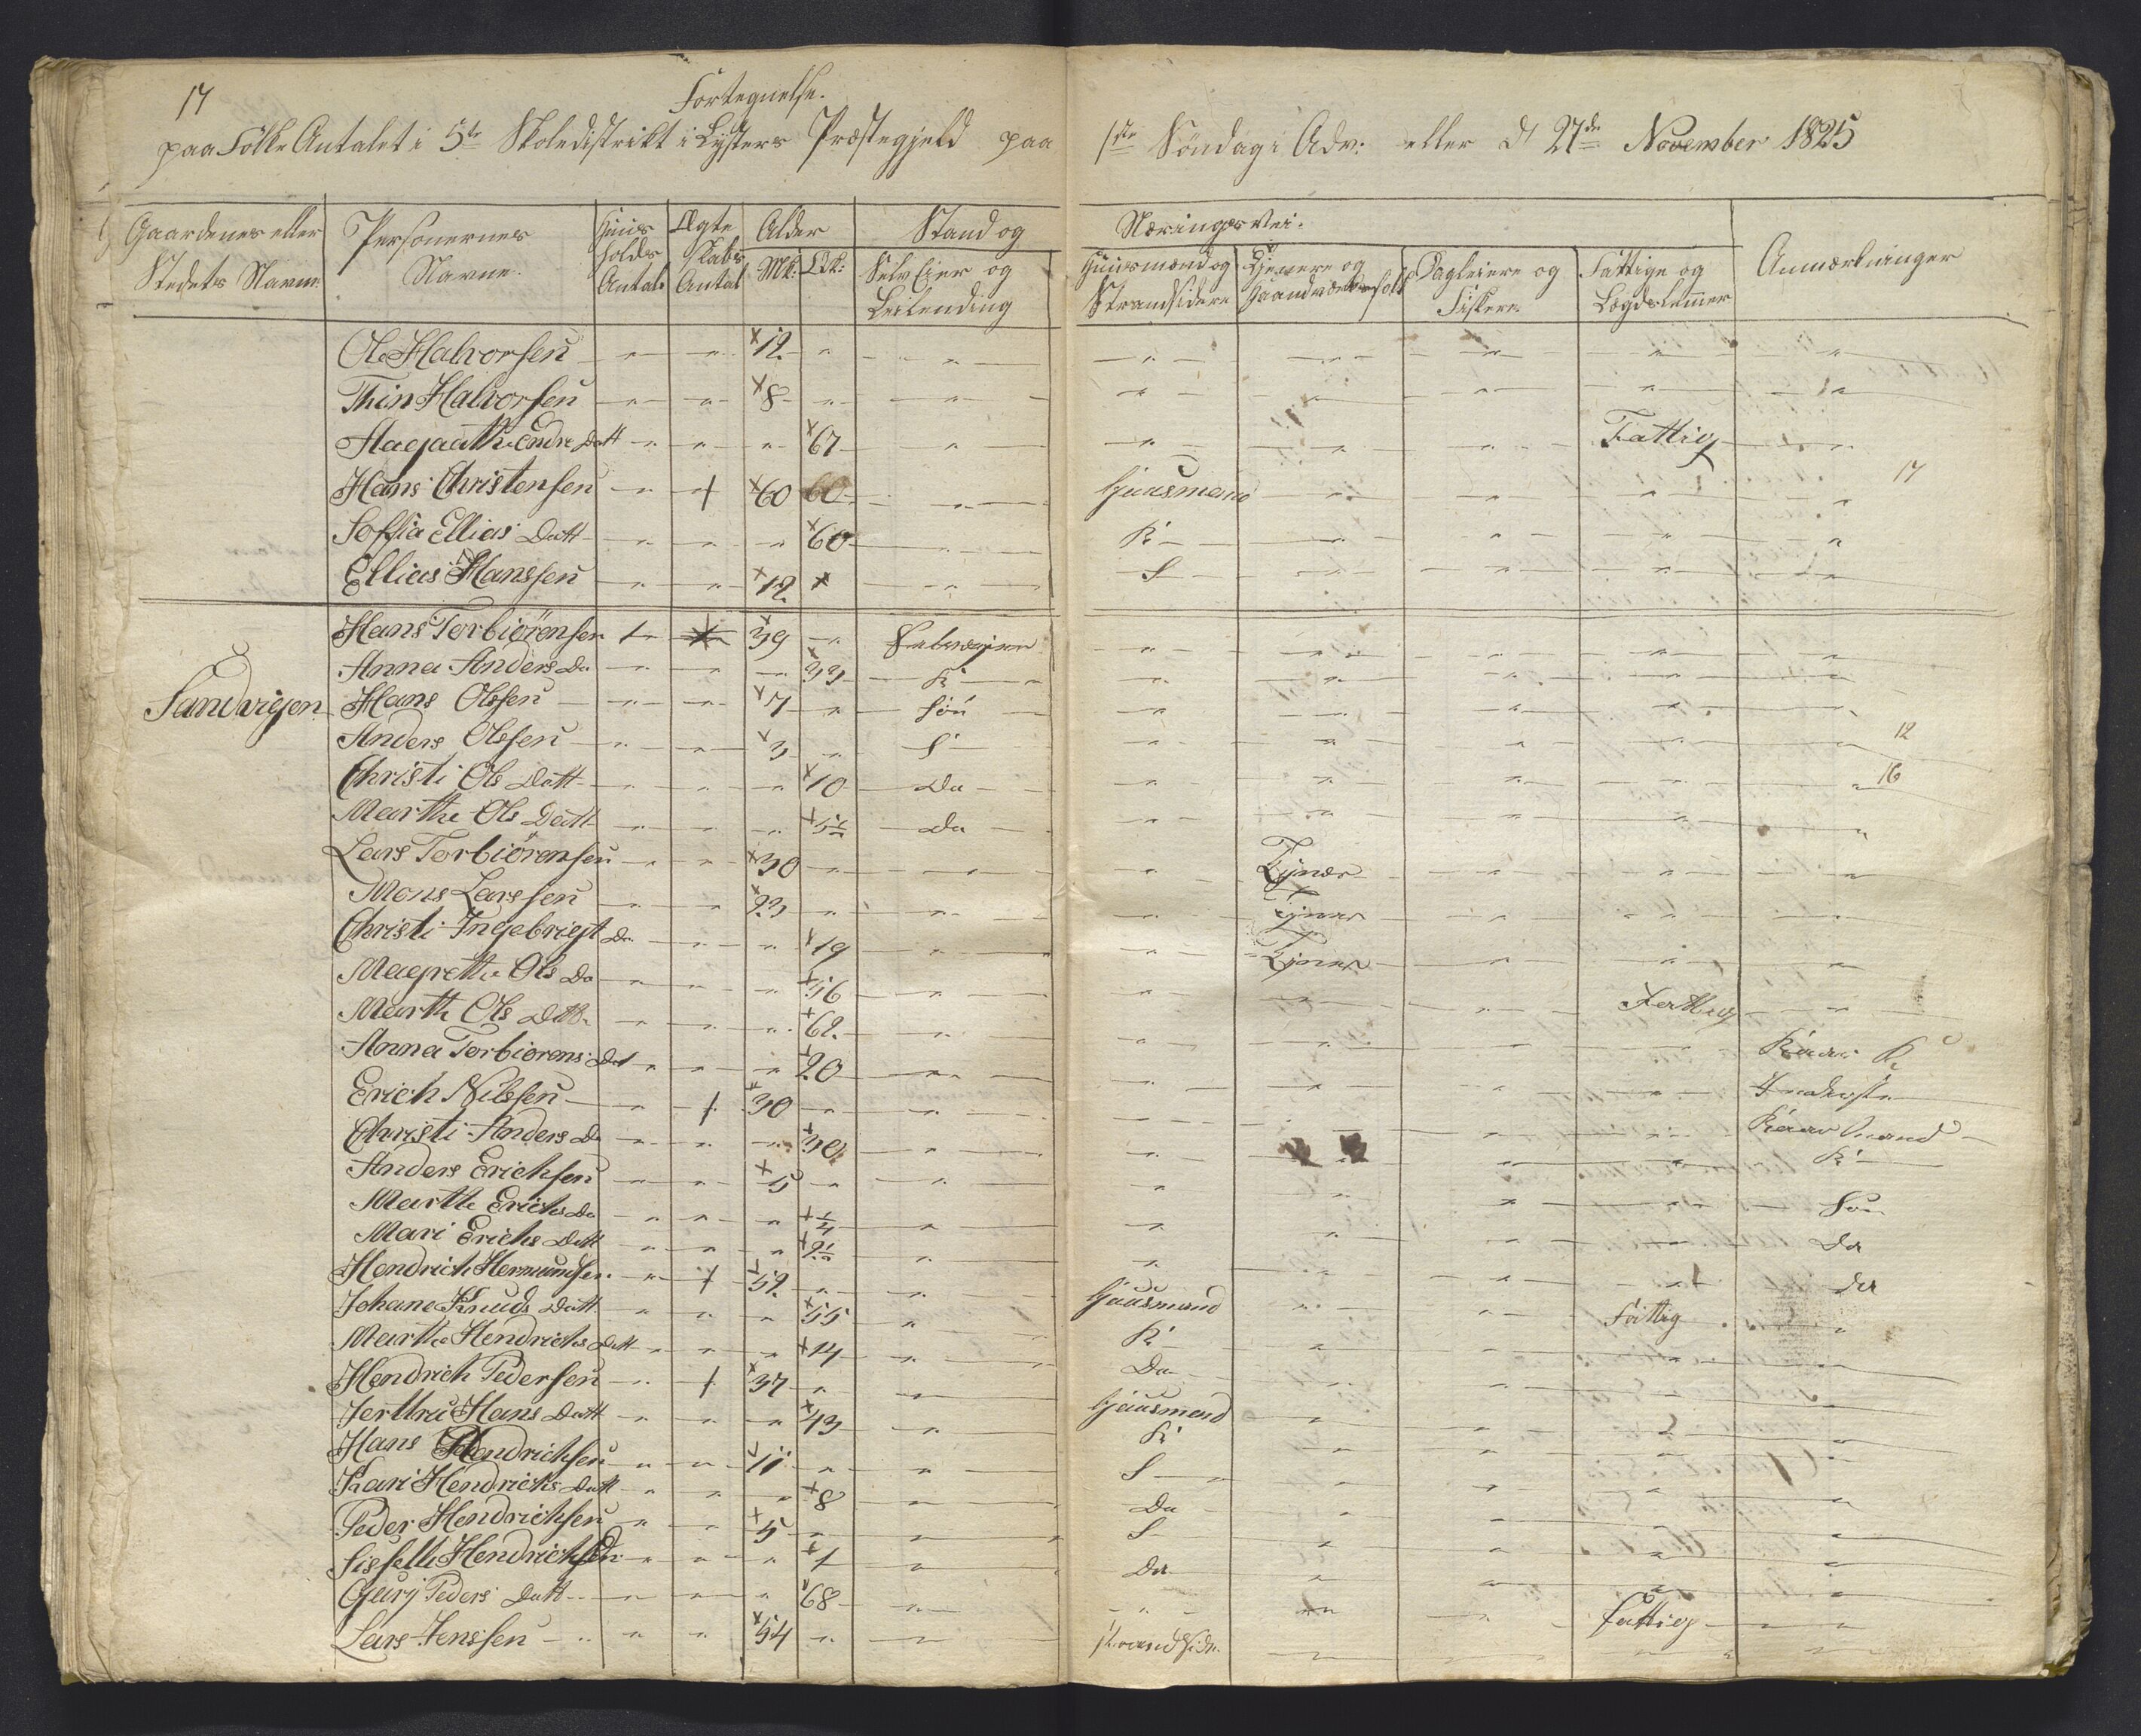 17
Fortegnelse.
paa Folke Antalet i 5te Skoledistrikt i Lysters Præstegjeld paa 1ste Söndag i Adv: eller d 27de November 1825
Gaardenes eller Stedets Navne | Personernes Navne. | Huus holds Antal | Ægte skabs Antal | Alder Mk: Qk: | Stand og Selv Eier og Leilending | Næringsvei. Huusmænd og Strandsidere | Tjenere og Haandværksfolk | Dagleiere og Fiskere | Fattige og Lægdslemmer | Anmærkninger
Ole Halvorsen 12
Thin Halvorsen 8
Endre Datt 67 Fattig
Hans Christensen 1 60 60 Huusmand 17
Soffia Ellias Datt 60 K
Ellias Hanssen 12 S
Hans Torbiörensen 1 1 39
Anna Anders Da 33 K
Sandvigen Hans Olssen 7 Sön
Anders Olssen 3 S 12
Christi Ols Datt 10 Da 16
Marthe Ols Datt 5½ Da
Lars Torbiörensen 30 Tjener
Mons Larssen 23 Tjener
Christi Ingebrigt Da 19 Tjener
Magrethe Ols Da 56 Fattig
Marth Ols Datt 62 Kaar K
Anna Torbiorens Dat 20 Inderste
Erich Nilssen 1 30 Kaar Mand
Christi Anders Da 30 K
Anders Erichsen 5 Sön
Marthe Erichs Da ¼ Da
Mari Erichs Datt 2½ Da
Hendrich Hermundsen 1 52 Huusmand Fattig
Johane Knuds Datt 55 K
Marthe Hendrichs Datt 14 Da
Hendrich Pedersen 1 37 Huusmand
Jerthru Hans Datt 43 K
Hans Hendrichsen 11 S
Kari Hendrichs Datt 8 Da
Peder Hendrichsen 5 S
Sisselle Hendrichs Da 1 Da
Gurj Peders Datt 68 Fattig
Lars Jenssen 54 Strandside